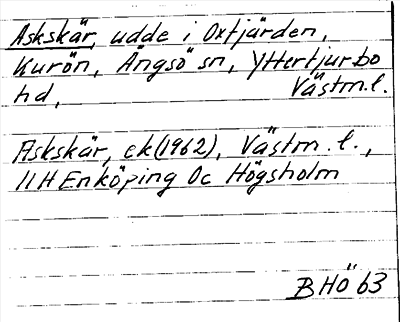 Askskär, udde i Oxfjärden,
Kurön, Ängsö sn, Yttertjurbo
hd, Västm.l.
Askskär, ek(1962), Västm.l.,
11H Enköping 0c Högsholm
BHÖ 63